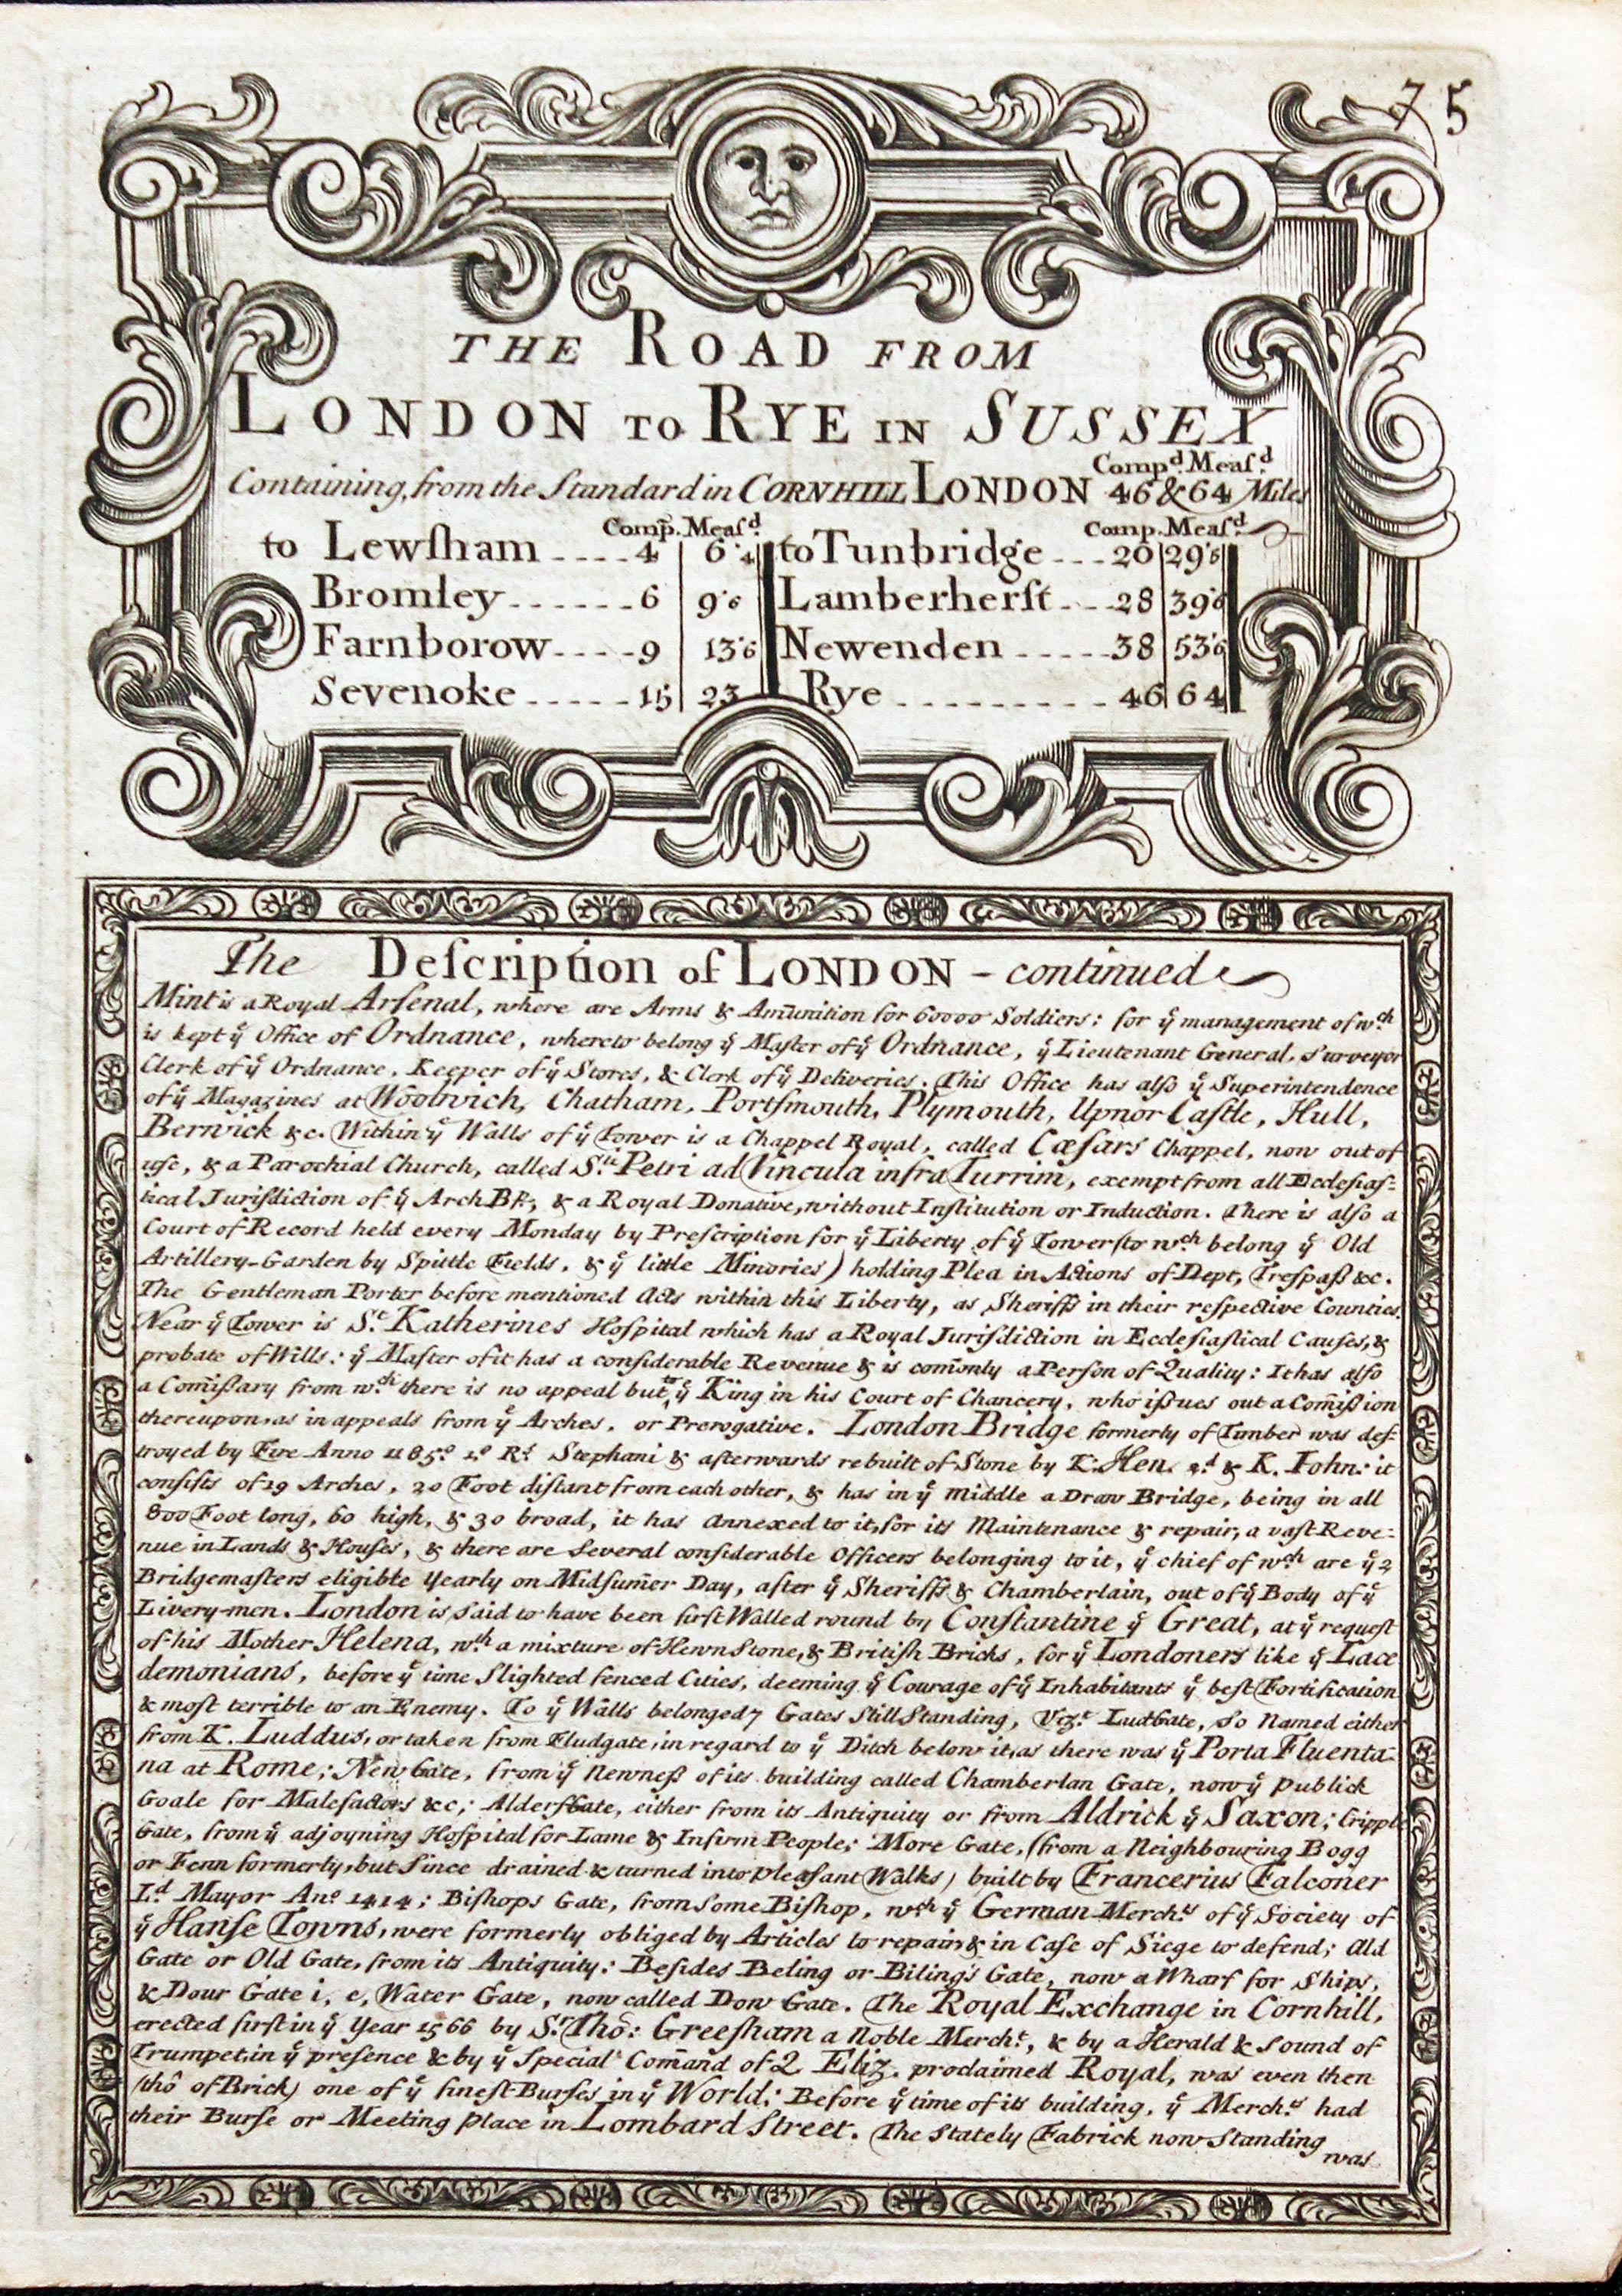 75
THE ROAD FROM
LONDON TO RYE IN SUSSEX,
Comp.d Meaſ.d
Containing, from the Standard in CORNHILL LONDON 46 & 64 Miles
Comp. Meaſ.d Comp. Meaſ.d
to Lewſham ---- 4 | 6'4 to Tunbridge --- 20 | 29'6
Bromley ------ 6 | 9'6 Lamberherſt --- 28 | 39'6
Farnborow ---- 9 | 13'6 Newenden ----- 38 | 53'6
Sevenoke ----- 15 | 23 Rye --------- 46 | 64
The Deſcription of LONDON - continued
Mint is a Royal Arſenal, where are Arms & Am̄unition for 60000 Soldiers: for ẙ management of wch
is kept ẙ Office of Ordnance, whereto belong ẙ Maſter of ẙ Ordnance, ẙ Lieutenant General, Surveyor
Clerk of ẙ Ordnance, Keeper of ẙ Stores, & Clerk of ẙ Deliveries. This Office has alſo ẙ Superintendence
of ẙ Magazines at Woolwich, Chatham, Portſmouth, Plymouth, Upnor Caſtle, Hull,
Berwick &c. Within ẙ Walls of ẙ Tower is a Chappel Royal, called Cæſars Chappel, now out of
uſe, & a Parochial Church, called S.ti Petri ad Vincula infra Turrim, exempt from all Eccleſiaſ-
tical Jurisdiction of ẙ Arch Bp; & a Royal Donative, without Inſtitution or Induction. There is alſo a
Court of Record held every Monday by Preſcription for ẙ Liberty of ẙ Tower (to wch belong ẙ Old
Artillery-Garden by Spittle Fields, & ẙ little Minories) holding Plea in Actions of Dept, Treſpaß &c.
The Gentleman Porter before mentioned Acts within this Liberty, as Sheriffs in their reſpective Counties.
Near ẙ Tower is S.t Katherines Hoſpital which has a Royal Juriſdiction in Eccleſiaſtical Cauſes, &
probate of Wills: ẙ Maſter of it has a conſiderable Revenue & is com̄only a Perſon of Quality: It has alſo
a Com̄iſſary from wch there is no appeal but to ẙ King in his Court of Chancery, who iſſues out a Com̄iſſion
thereupon, as in appeals from ẙ Arches, or Prerogative. London Bridge formerly of Timber was deſ-
troyed by Fire Anno 1185.o 1.o R.s Stephani & afterwards rebuilt of Stone by K. Hen. 2.d & K. Iohn: it
conſiſts of 19 Arches, 20 Foot diſtant from each other, & has in ẙ middle a Draw Bridge, being in all
800 Foot long, 60 high, & 30 broad, it has Annexed to it, for its Maintenance & repair, a vaſt Reve-
nue in Lands & Houſes, & there are Several conſiderable Officers belonging to it, ẙ chief of wch are ẙ 2
Bridgemaſters eligible Yearly on Midſum̄er Day, after ẙ Sheriffs & Chamberlain, out of ẙ Body of ẙ
Livery-men. London is Said to have been firſt Walled round by Conſtantine ẙ Great, at ẙ requeſt
of his Mother Helena, wth a mixture of Hewn Stone, & Britiſh Bricks, for ẙ Londoners like ẙ Lace
demonians, before ẙ time Slighted fenced Cities, deeming ẙ Courage of ẙ Inhabitants ẙ beſt Fortification
& moſt terrible to an Enemy. To ẙ Walls belonged 7 Gates Still Standing, Viz.t LudGate, So Named either
from K. Luddus, or taken from Fludgate, in regard to ẙ Ditch below it, as there was ẙ Porta Fluenta-
na at Rome; New Gate, from ẙ Newneß of its building called Chamberlan Gate, now ẙ Publick
Goale for Malefactors &c; AlderſGate, either from its Antiquity or from Aldrick ẙ Saxon; Cripple
Gate, from ẙ adjoyning Hoſpital for Lame & Infirm People; More Gate, (from a Neighbouring Bogg
or Fenn formerly, but Since drained & turned into Pleaſant Walks) built by Francerius Falconer
L.d Mayor An.o 1414; Biſhops Gate, from Some Biſhop, wch ẙ German Merch.ts of ẙ Society of
ẙ Hanſe Towns, were formerly obliged by Articles to repair & in Caſe of Siege to defend; Ald
Gate or Old Gate, from its Antiquity: Beſides Beling or Biling's Gate, now a Wharf for Ships,
& Dour Gate i, e, Water Gate, now called Dow Gate. The Royal Exchange in Cornhill,
erected firſt in ẙ Year 1566 by S.r Tho: Greeſham a Noble Merch.t, & by a Herald & Sound of
Trumpet, in ẙ preſence & by ẙ Special Com̄and of Q. Eliz. proclaimed Royal, was even then
(tho' of Brick) one of ẙ fineſt Burſes in ẙ World: Before ẙ time of its building, ẙ Merch.ts had
their Burſe or Meeting Place in Lombard Street. The Stately Fabrick now Standing
was